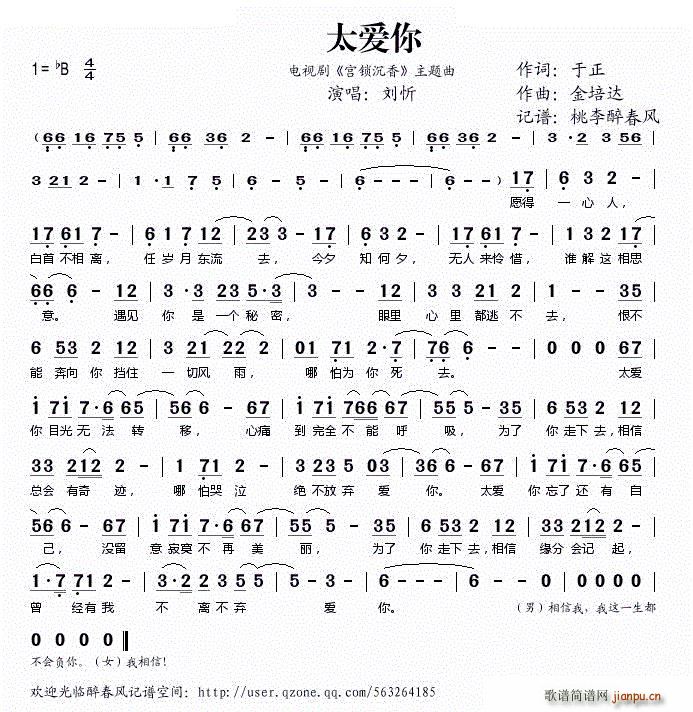 太爱你
1=♭B 4/4
电视剧《宫锁沉香》主题曲
演唱：刘忻
作词：于正
作曲：金培达
记谱：桃李醉春风
( 66 16 75 5 | 66 36 2 - | 66 16 75 5 | 66 36 2 - | 3 · 2 3 56 |
3 212 2 - | 1 · 1 7 5 | 6 - 5 - | 6 - - - | 6 - - ) 17 | 6 3 2 - |
愿得 一 心 人，
17 61 7 - | 6 17 2 | 23 3 - 17 | 6 32 - | 17 61 7 - | 1 32 17 |
白首 不相 离， 任 岁月 东流 去， 今夕 知 何夕， 无人 来怜 惜， 谁 解 这 相思
66 6 - 12 | 3 · 3 23 5·3 | 3 - - 12 | 3 3 22 1 | 1 - - 35 |
意。 遇见 你 是 一个 秘密， 眼里 心 里 都逃 不 去， 恨不
6 53 2 12 | 3 21 22 | 2 - 71 2·7 | 76 6 - - | 0 0 0 67 |
能 奔向 你 挡住 一 切风 雨， 哪 怕为 你 死 去。 太爱
1 71 7·6 65 | 56 6 - 67 | 1 71 766 67 | 55 5 - 35 | 6 53 5 12 |
你 目光 无 法 转 移， 心痛 到 完全 不 能 呼 吸， 为了 你 走下 去，相信
33 212 - | 1 71 2 - | 3 235 03 | 36 6 - 67 | 1 71 7·6 65 |
总会 有奇 迹， 哪 怕哭 泣 绝 不放 弃 爱 你。 太爱 你 忘了 还 有 自
56 6 - 67 | 1 71 7·6 67 | 55 5 - 35 | 6 53 2 12 | 33 212 - |
己， 没留 意 寂寞 不 再 美 丽， 为了 你 走下 去，相信 缘分 会记 起，
1·7 71 2 - | 3·2 235 5 | 5 - 2 - | 6 - - 0 | 0 0 0 0 |
曾 经有 我 不 离不 弃 爱 你。 （男）相信我，我这一生都
0 0 0 0 ‖
不会负你。（女）我相信！
欢迎光临醉春风记谱空间：http://user.qzone.qq.com/563264185
歌谱简谱网
jianpu.cn